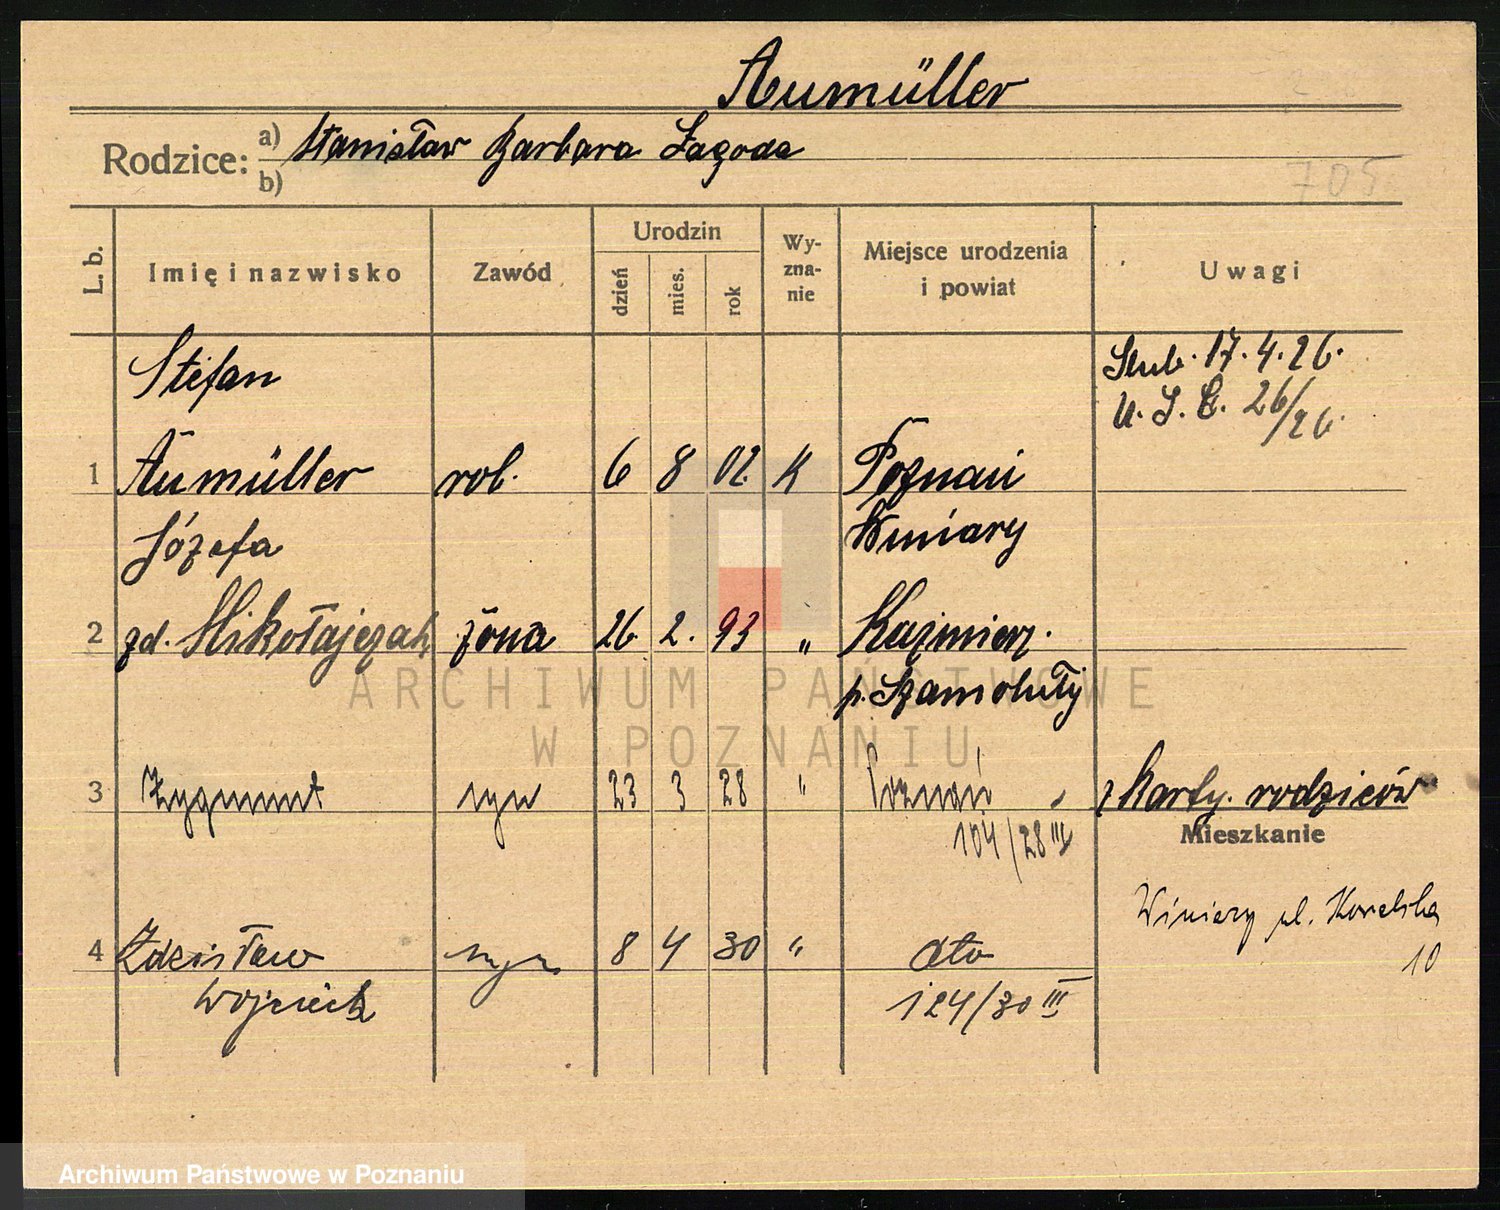 Aumüller
Rodzice: a) Stanisław Barbara Zagoda
b)
705
L. b. Imię i nazwisko Zawód Urodzin dzień mies. rok Wy-zna-nie Miejsce urodzenia i powiat Uwagi
Stefan Ślub. 17.4.26.
U. S. C. 26/26.
1 Aumüller rob. 6 8 02. K Poznań
Józefa Winiary
2 zd. Mikołajczak żona 26 2. 93 „ Kaźmierz.
p. Szamotuły
3 Zygmunt syn 23 3 28 " Poznań z Karty. rodziców
104/28 III Mieszkanie
Winiary ul.
10
4 Zdzisław syn 8 4 30 " dto
Wojciech 124/30 III
ARCHIWUM PAŃSTWOWE
W POZNANIU
Archiwum Państwowe w Poznaniu